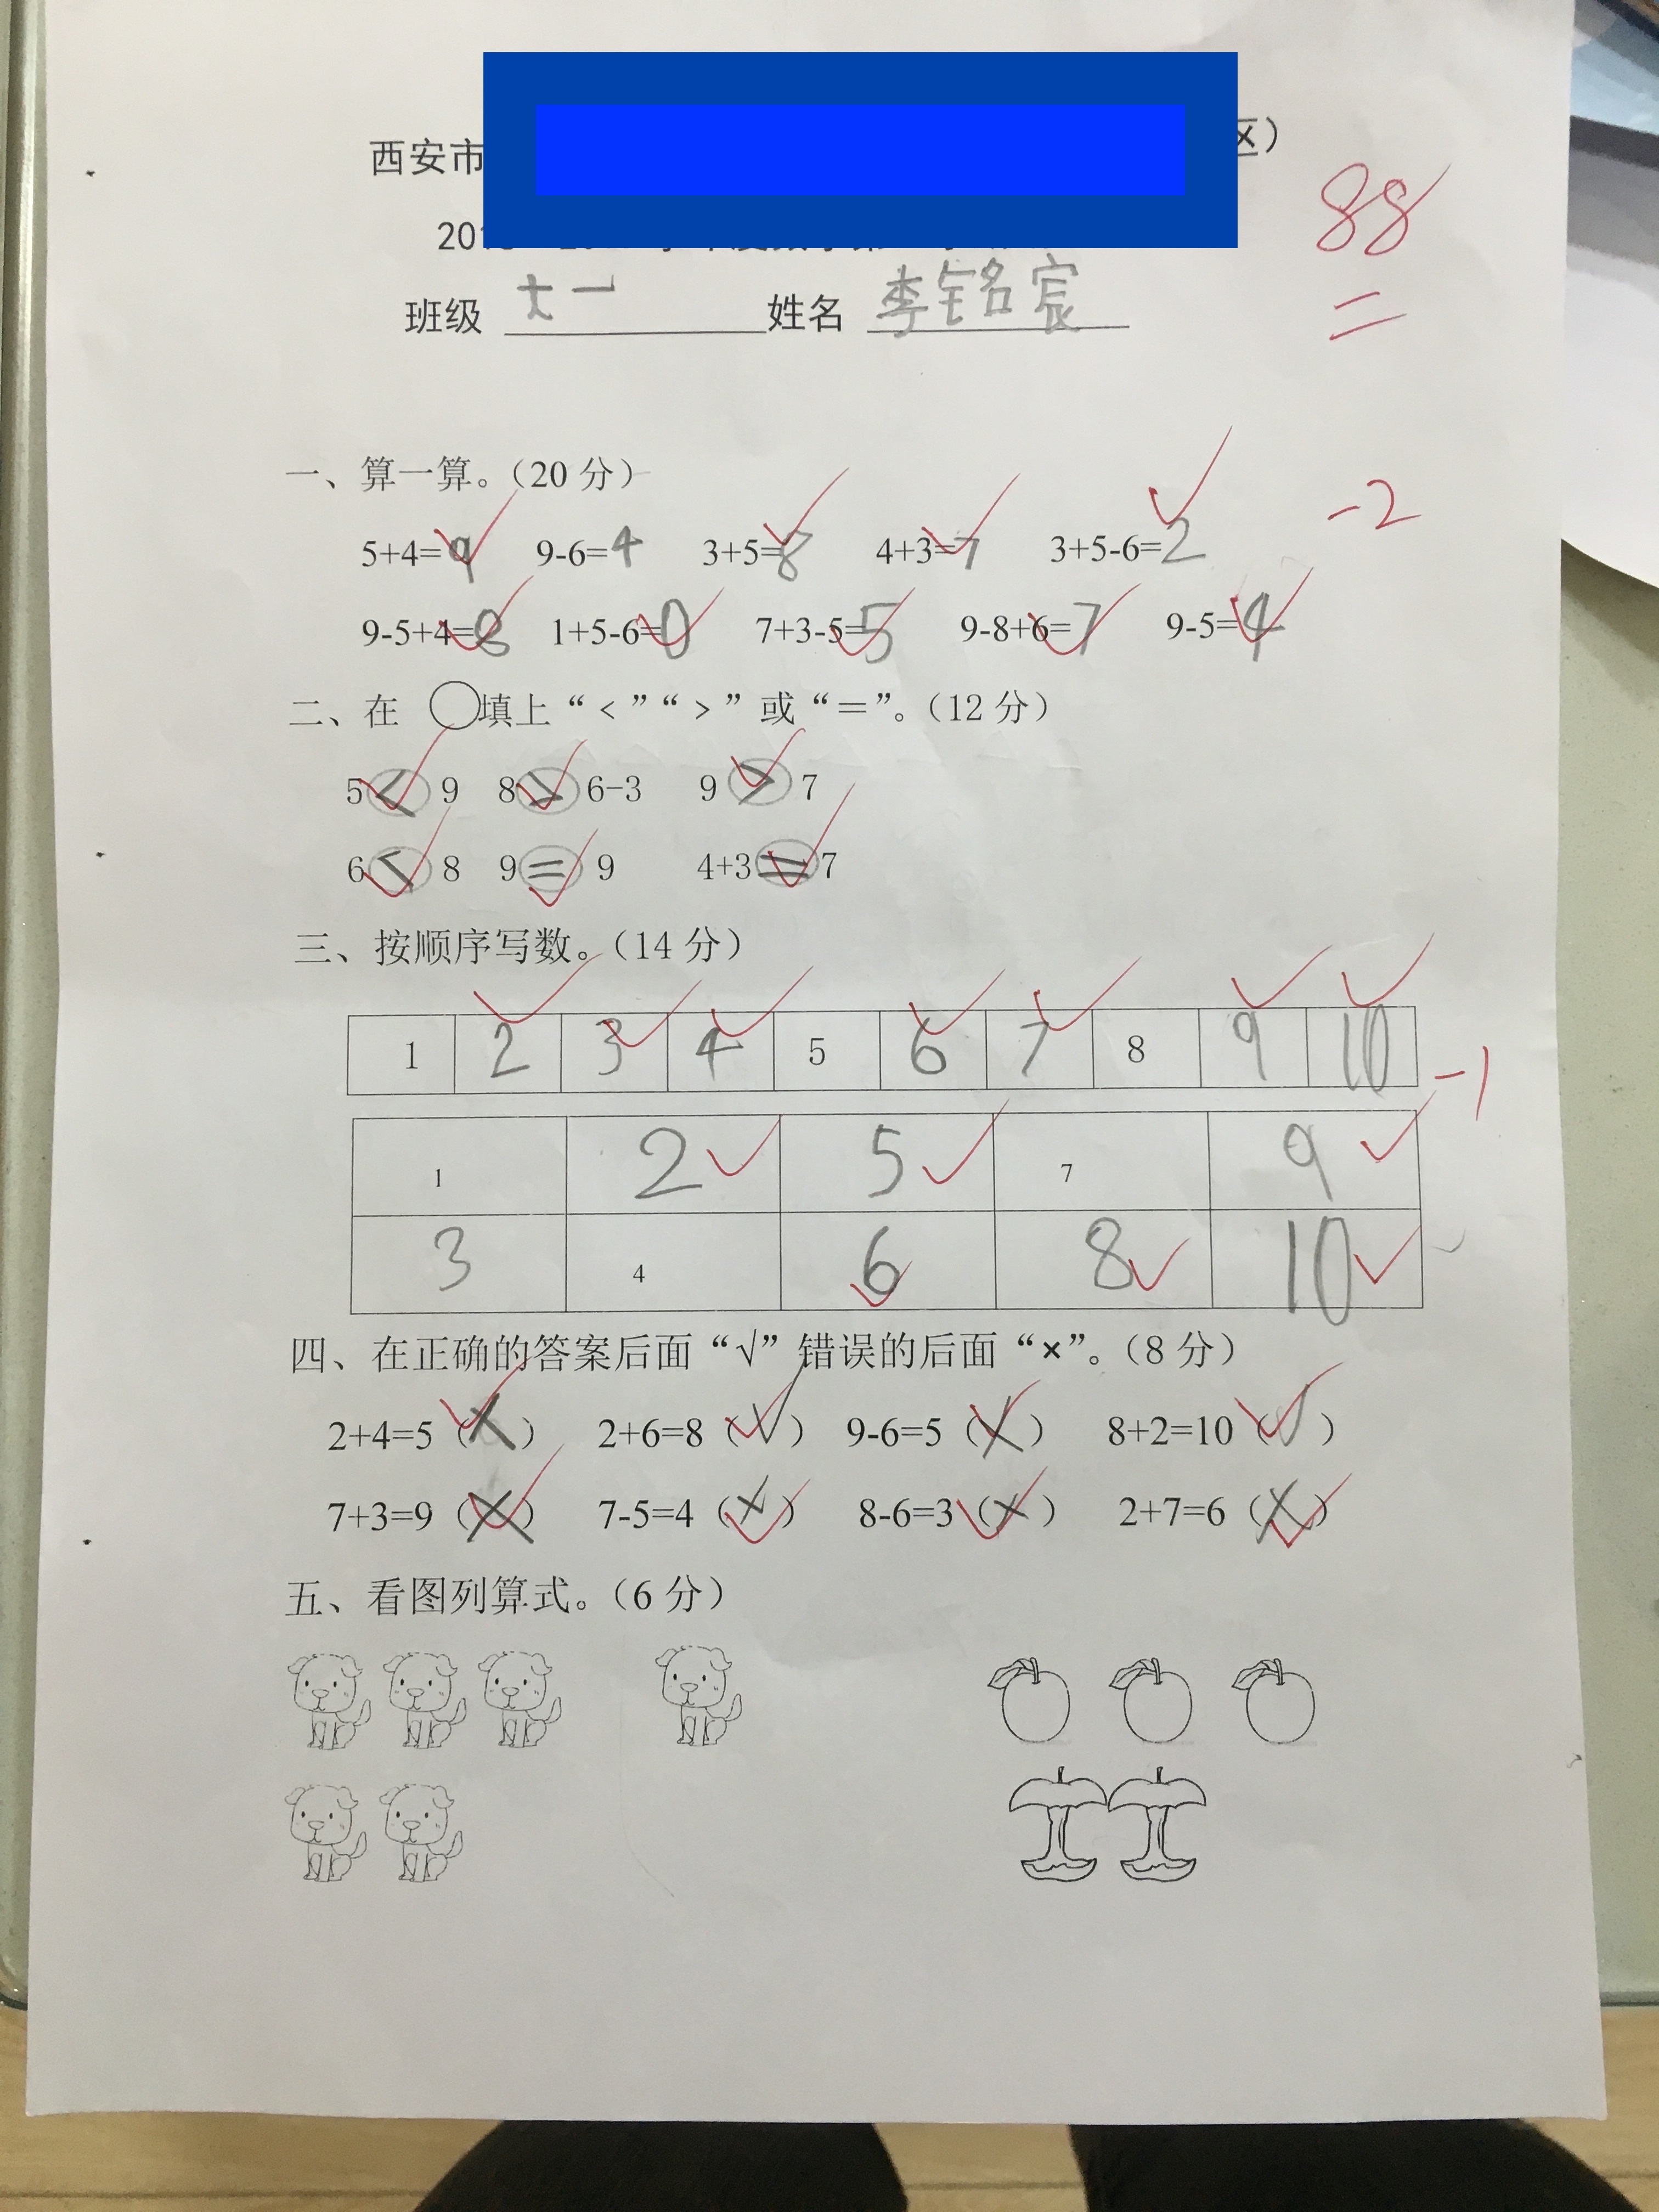 西安市 区）
88
班级 大一 姓名 李铭宸
一、算一算。（20 分）
-2
5+4=9 9-6=4 3+5=8 4+3=7 3+5-6=2
9-5+4=8 1+5-6=0 7+3-5=5 9-8+6=7 9-5=4
二、在 ○填上“＜”“＞”或“＝”。（12 分）
5 < 9 8 > 6-3 9 > 7
6 < 8 9 = 9 4+3 = 7
三、按顺序写数。（14 分）
1 2 3 4 5 6 7 8 9 10
-1
1 2 5 7 9
3 4 6 8 10
四、在正确的答案后面“√”错误的后面“×”。（8 分）
2+4=5（×） 2+6=8（√） 9-6=5（×） 8+2=10（√）
7+3=9（×） 7-5=4（×） 8-6=3（×） 2+7=6（×）
五、看图列算式。（6 分）